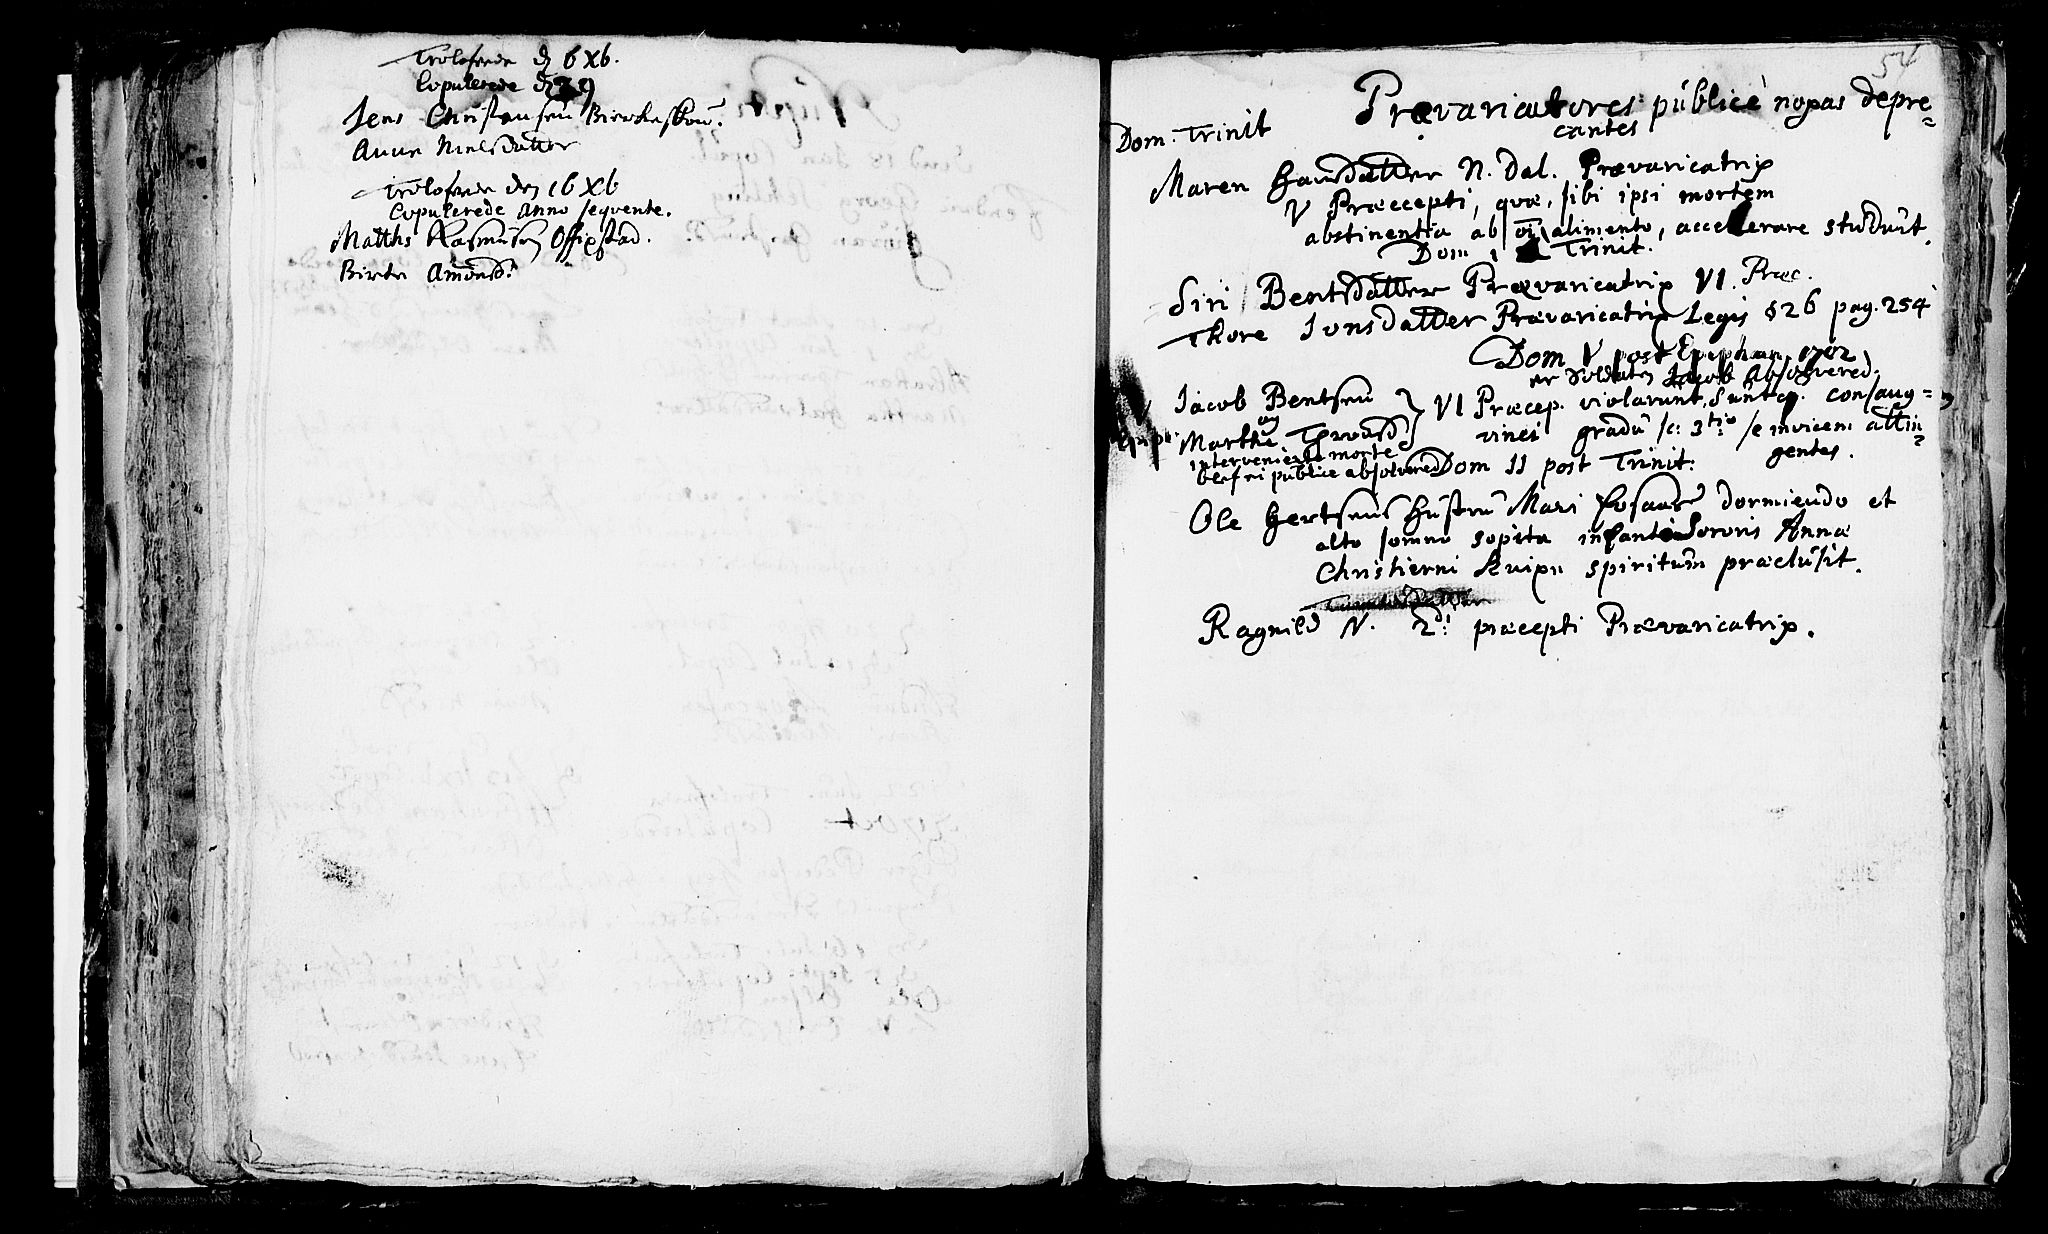 Trolofvede d 6 Xb.
Copulerede d 29
Jens Christensen Bircheskou.
Anne Nielsdatter
Trolofvede den 16 Xb
Copulerede Anno seqvente.
Matths Rasmusen Offigstad.
Birte Amonsd:
54
Prævaricatores publicè nopas depre=
cantes
Dom. Trinit
Maren Hansdatter N. Dal. Prævaricatrix
V Præcepti, quæ, sibi ipsi mortem
abstinentia ab oi alimento, accelerare studuit.
Dom 1 Trinit.
Siri Bentsdatter Prævaricatrix VI. Præc.
Thore Jonsdatter Prævaricatrix Legis § 26 pag. 254
Dom V post Epiphan. 1702
er Soldaten Jacob Absolvered.
Jacob Bentsen
og
Marthe
VI Præcep. violarunt, sunt consang=
vinei gradu sc: 3tio se invicem attin=
gentes.
interveniente morte
publice absolvered
Dom 11 post Trinit:
Ole Hertsens Hustru Mari Fosaas dormiendo et
alto somno sopita infanti Sororis Annæ
Christierni spiritum præclusit.
Ragnild N. 2di præcepti Prævaricatrix.